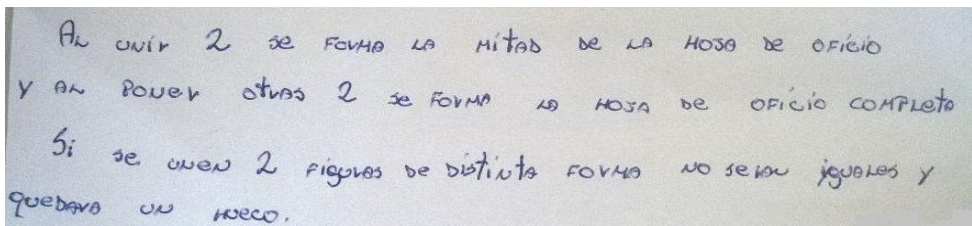 Al unir 2 se forma la mitad de la hoja de oficio
y al poner otras 2 se forma la hoja de oficio completo
Si se unen 2 figuras de distinta forma no seran iguales y
quedara un hueco.